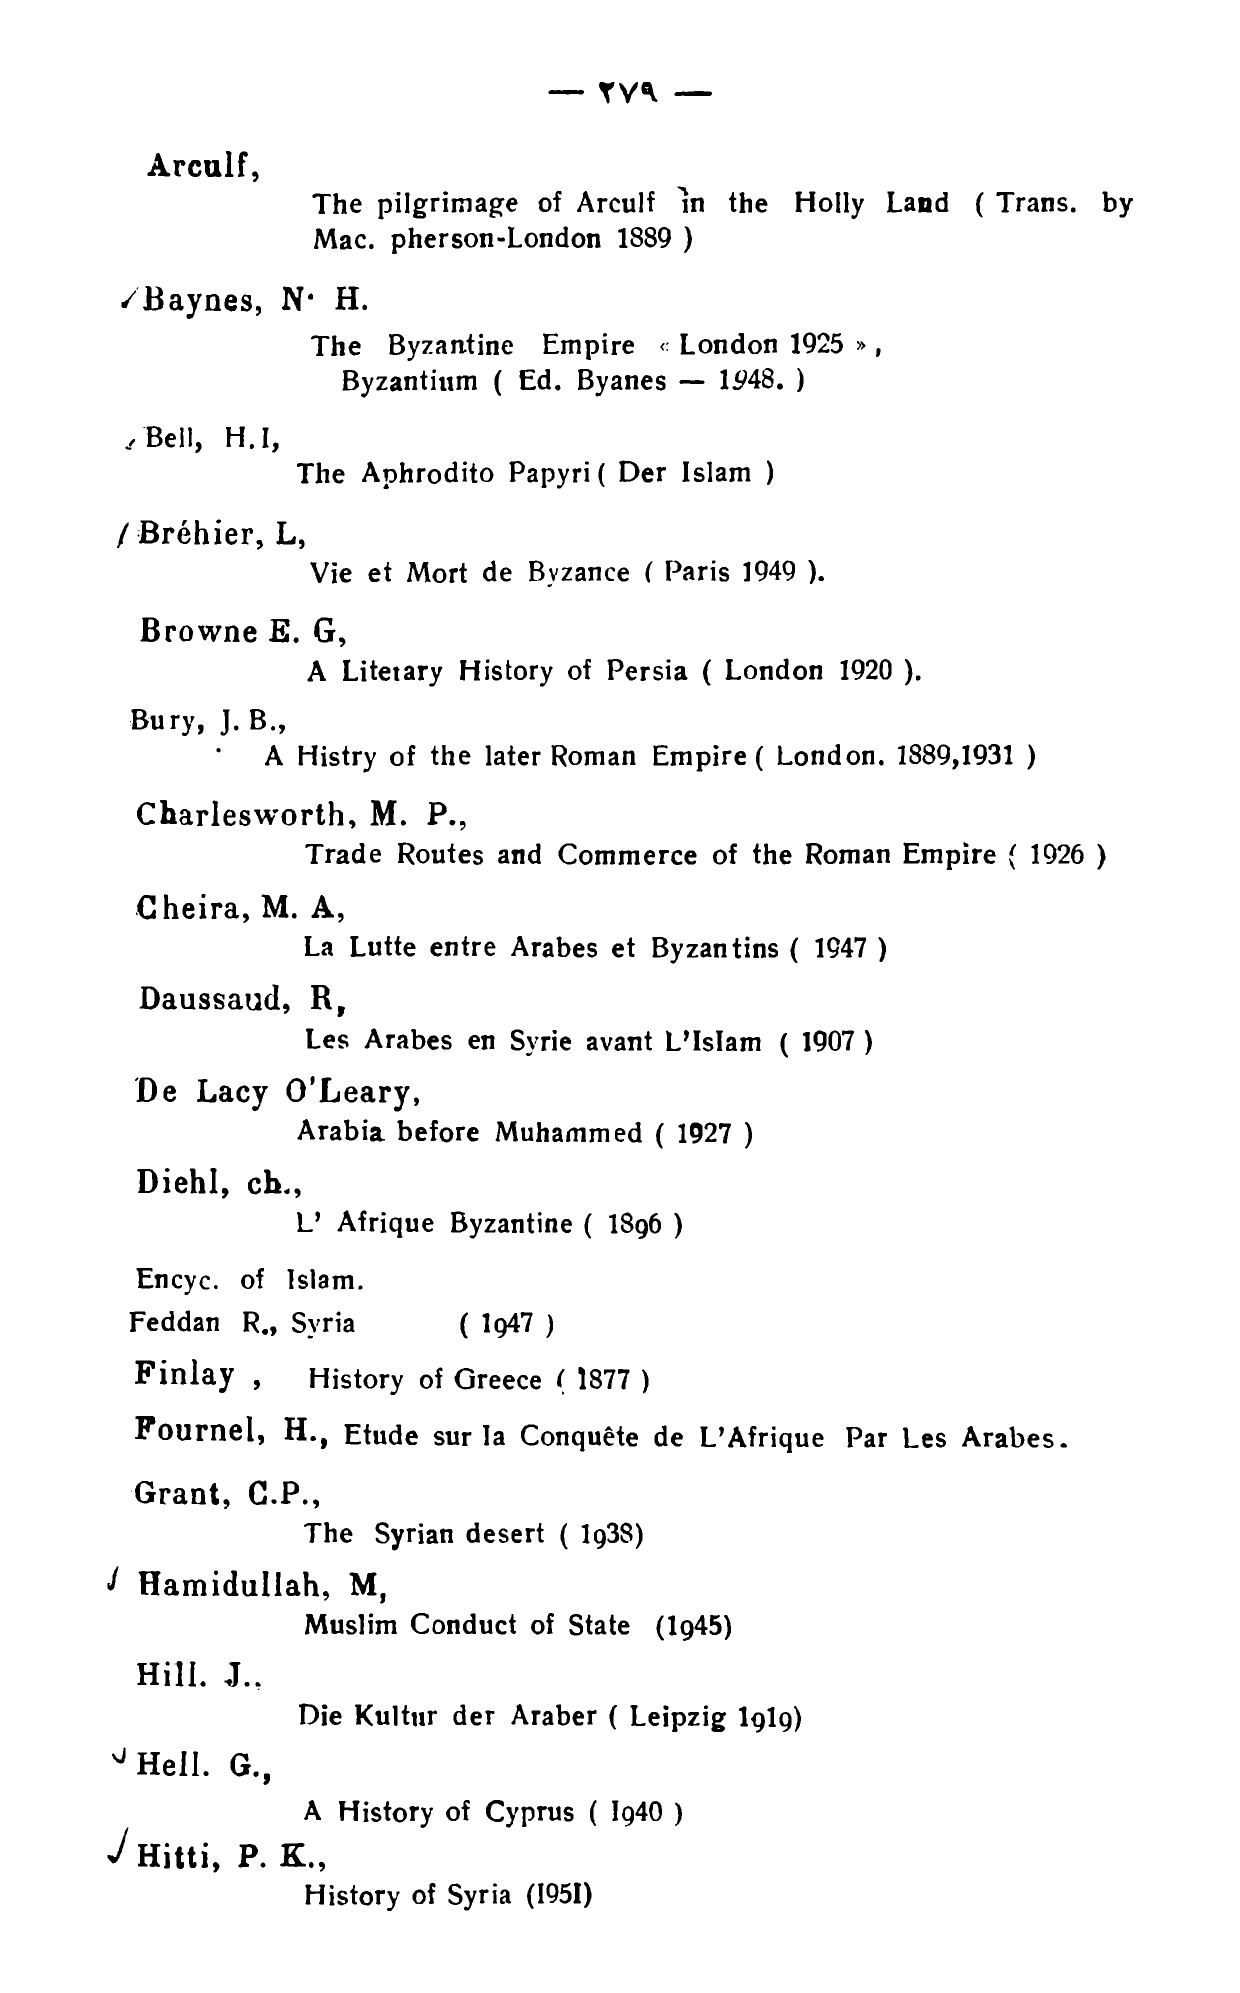 — ٢٧٩ —
Arculf,
The pilgrimage of Arculf in the Holly Land ( Trans. by
Mac. pherson-London 1889 )
Baynes, N. H.
The Byzantine Empire « London 1925 » ,
Byzantium ( Ed. Byanes — 1948. )
Bell, H. I,
The Aphrodito Papyri ( Der Islam )
Bréhier, L,
Vie et Mort de Byzance ( Paris 1949 ).
Browne E. G,
A Literary History of Persia ( London 1920 ).
Bury, J. B.,
A Histry of the later Roman Empire ( London. 1889,1931 )
Charlesworth, M. P.,
Trade Routes and Commerce of the Roman Empire ( 1926 )
Cheira, M. A,
La Lutte entre Arabes et Byzantins ( 1947 )
Daussaud, R,
Les Arabes en Syrie avant L'Islam ( 1907 )
De Lacy O'Leary,
Arabia before Muhammed ( 1927 )
Diehl, ch.,
L' Afrique Byzantine ( 1896 )
Encyc. of Islam.
Feddan R., Syria ( 1947 )
Finlay , History of Greece ( 1877 )
Fournel, H., Etude sur la Conquête de L'Afrique Par Les Arabes.
Grant, C.P.,
The Syrian desert ( 1938)
Hamidullah, M,
Muslim Conduct of State (1945)
Hill. J..
Die Kultur der Araber ( Leipzig 1919)
Hell. G.,
A History of Cyprus ( 1940 )
Hitti, P. K.,
History of Syria (1951)